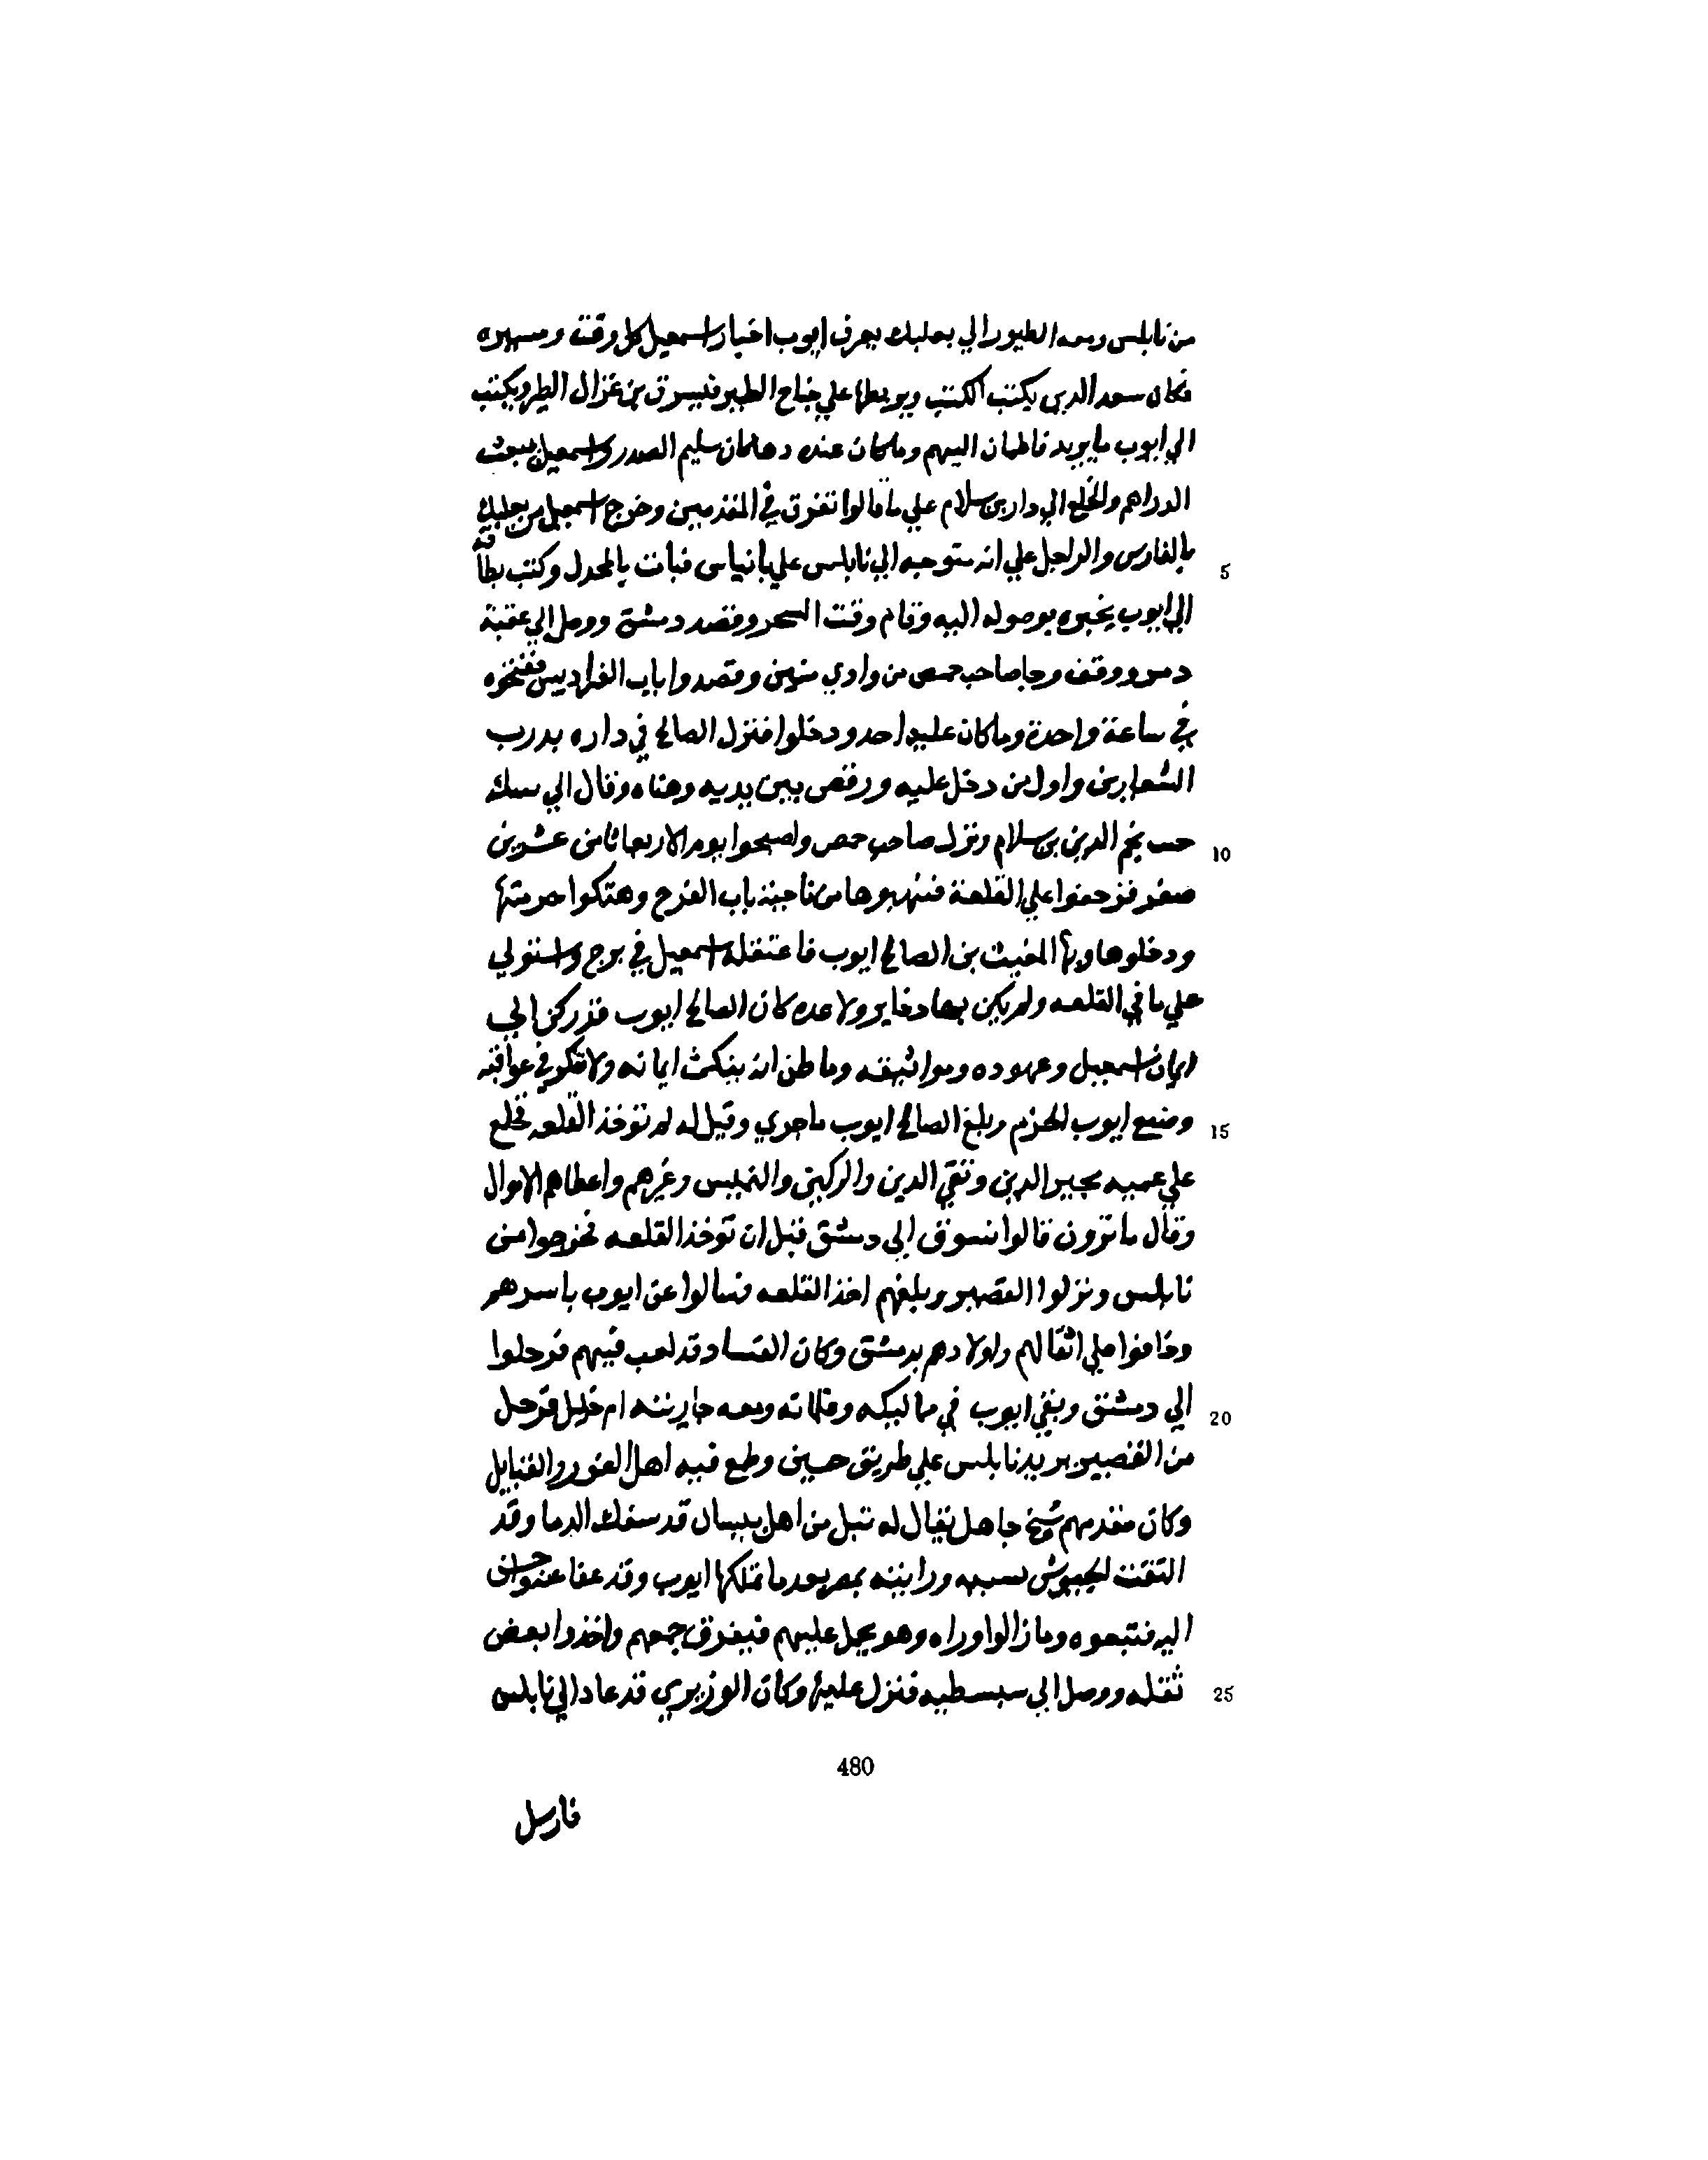 من نابلس ومعه الطيور الي بعلبك يعرف ايوب اخبار اسمعيل كل وقت ومسيره
فكان سعد الدين يكتب الكتب ويربطها علي جناح الطير فيسرق بن غزال الطير ويكتب
الي ايوب ما يريد فاطمان اليهم وما كان عنده دها كان سليم الصدر واسمعيل يبعث
الدراهم والخلع الي دار بن سلام علي ما قالوا تفرق في المقدمين وخرج اسمعيل من بعلبك
5 بالفارس والراجل علي انه متوجه الي نابلس علي بانياس فبات بالمجدل وكتب بطاقه
الي ايوب يخبره بوصوله اليه وقام وقت السحر وقصد دمشق ووصل الي عقبة
دمر ووقف وجا صاحب حمص من وادي منين وقصدوا باب الفراديس ففتحوه
في ساعة واحدة وما كان عليه احد ودخلوا فنزل الصالح في داره بدرب
الشعارين واول من دخل عليه ورقص بين يديه وهناه وقال الي بيتك
10 جيت نجم الدين بن سلام ونزل صاحب حمص واصبحوا يوم الاربعا ثامن عشرين
صفر فزحفوا علي القلعة فنهبوها من ناحية باب الفرج وهتكوا حرمتها
ودخلوها وبها المغيث بن الصالح ايوب فاعتقله اسمعيل في برج واستولي
علي ما في القلعه ولم يكن بها دخاير ولا عده كان الصالح ايوب قد ركن الي
ايمان اسمعيل وعهوده ومواثيقه وما ظن انه ينكث ايمانه ولا فكر في عواقبه
15 وضيع ايوب الحزم وبلغ الصالح ايوب ما جري وقيل له لم توخذ القلعه فخلع
علي عميه مجير الدين وتقي الدين والركبتي والنميس وغيرهم واعطاهم الاموال
وقال ما ترون قالوا نسوق الي دمشق قبل ان توخذ القلعه فخرجوا من
نابلس ونزلوا القصير وبلغهم اخذ القلعه فسالوا عن ايوب باسرهم
وخافوا علي اثقالهم واولادهم بدمشق وكان الفساد قد لعب فيهم فرحلوا
20 الي دمشق وبقي ايوب في مماليكه وغلمانه ومعه جاريته ام خليل فرحل
من القصير يريد نابلس علي طريق حسين وطمع فيه اهل الغور والقبايل
وكان مقدمهم شيخ جاهل يقال له تبل من اهل بيسان قد سفك الدما وقد
التقت الجيوش بسببه ورايته بمصر بعد ما تملكها ايوب وقد عفا عنه واحسن
اليه فتبعوه وما زالوا وراه وهو يحمل عليهم فيفرق جمعهم واخذوا بعض
25 ثقله ووصل الي سبسطيه فنزل عليها وكان الوزيري قد عاد الي نابلس
480
فارسل